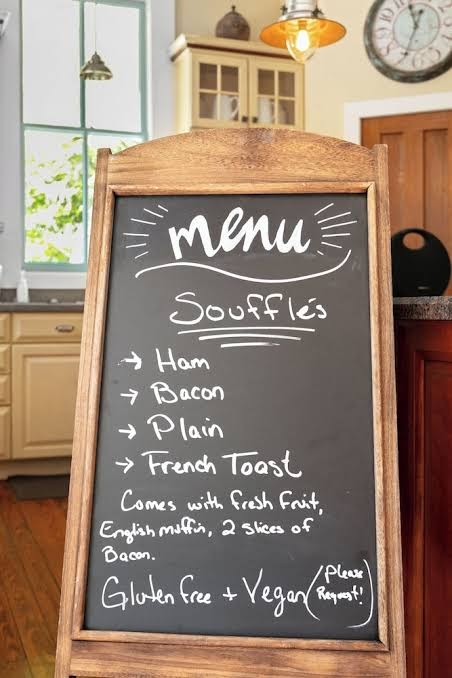 menu
Souffle's
→ Ham
→ Bacon
→ Plain
→ French Toast
Comes with fresh fruit,
English muffin, 2 slices of
Bacon.
Gluten free + Vegan (Please Request!)